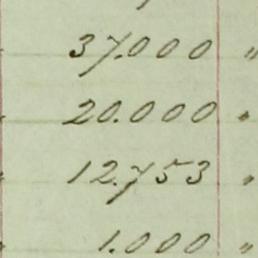 37.000 "
20.000 "
12.753 "
1.000 "